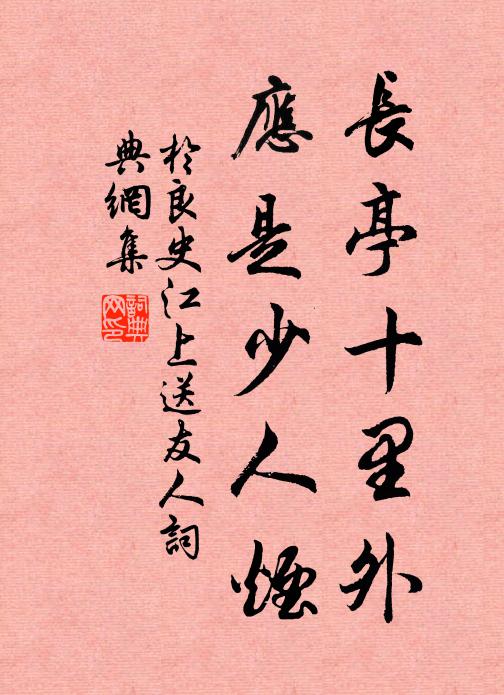 長亭十里外
應是少人煙
於良史江上送友人詞
典網集
詞典網印